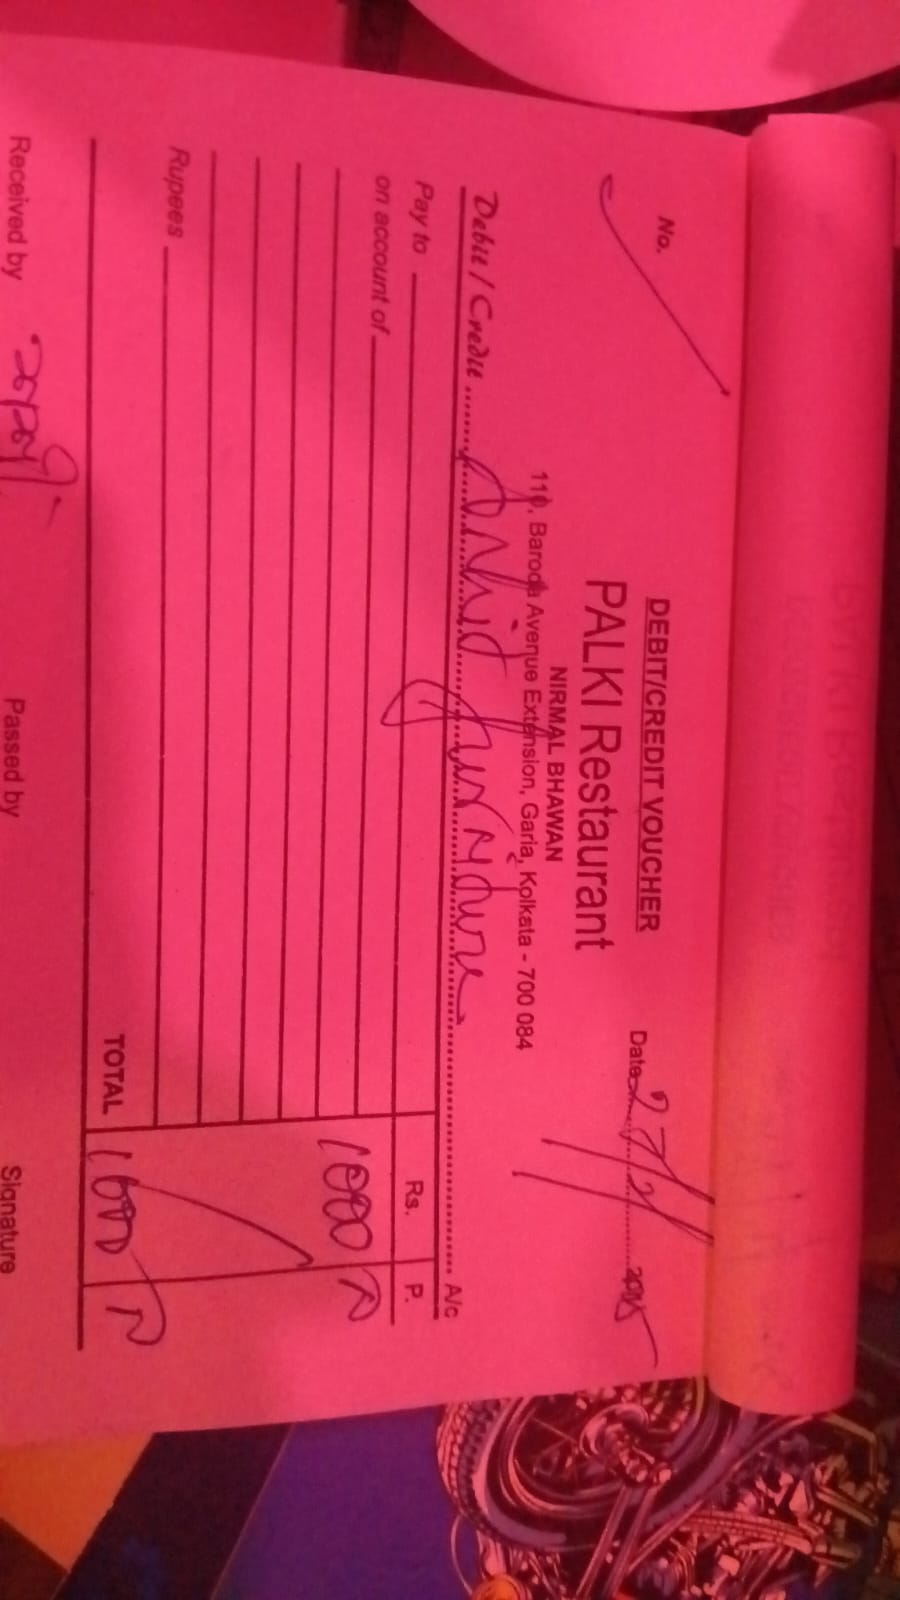 DEBIT/CREDIT VOUCHER
No.
Date 27/2/
PALKI Restaurant
NIRMAL BHAWAN
110, Baroda Avenue Extension, Garia, Kolkata - 700 084
Debit / Credit A/c
Pay to
Rs. P.
on account of
1000
Rupees
TOTAL 1000
Received by Passed by Signature